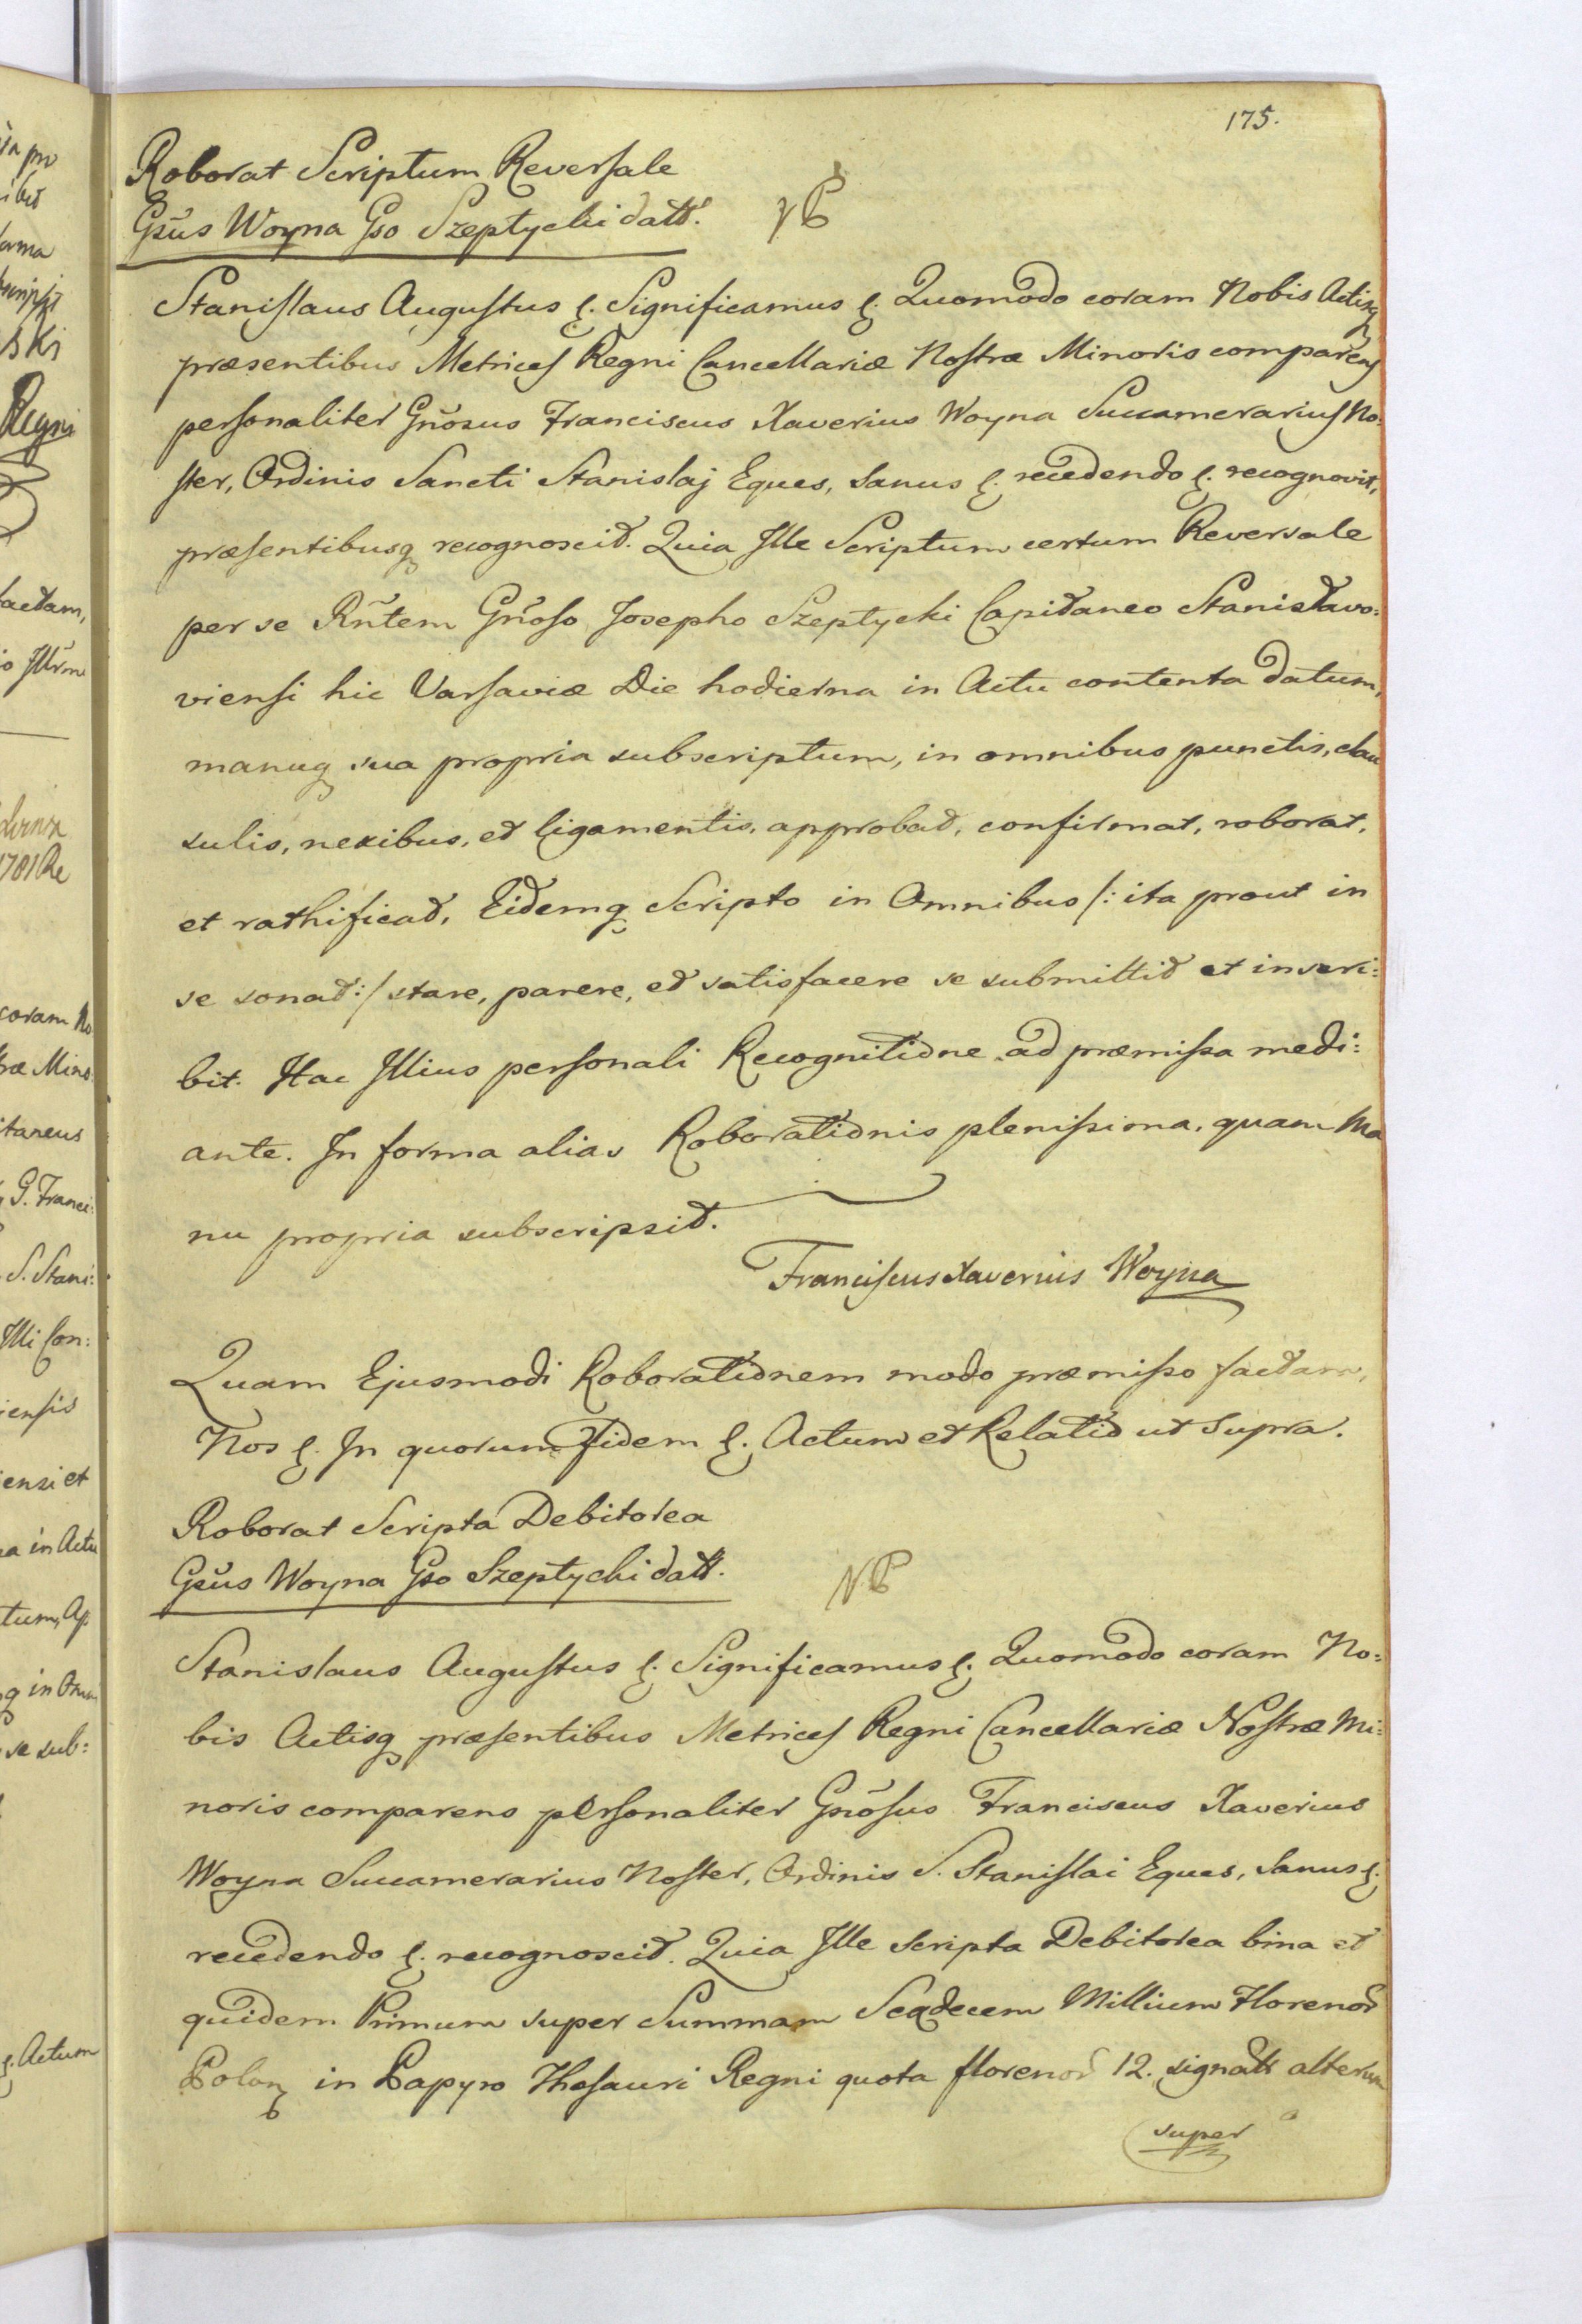 175.
Roborat Scriptum Reversale
Gsũs Woyna Gso Szeptycki datt. NB
Stanislaus Augustus &. Significamus &. Quomodo coram Nobis Actisq
præsentibus Metrices Regni Cancellariæ Nostræ Minoris comparens
personaliter Gñosus Franciscus Xaverius Woyna Succamerarius No:
ster, Ordinis Sancti Stanislaj Eques, sanus &. recedendo &. recognovit,
præsentibusq recognoscit. Quia Ille Scriptum certum Reversale
per se Rñtem Gñoso Josepho Szeptycki Capitaneo Stanislavo:
viensi hic Varsaviæ Die hodierna in Actu contenta datum,
manuq sua propria subscriptum, in omnibus punctis, clau
sulis, nexibus, et ligamentis, approbat, confirmat, roborat,
et rathificat, Eidemq Scripto in Omnibus /: ita prout in
se sonat :/ stare, parere, et satisfacere se submittit et inscri:
bit. Hac Illius personali Recognitione ad præmissa medi:
ante. In forma alias Roborationis plenissima, quam Ma
nu propria subscripsit.
Franciscus Xaverius Woyna
Quam Ejusmodi Roborationem modo præmisso factam,
Nos &. In quorum Fidem &. Actum et Relatio ut Supra.
Roborat Scripta Debitorea
Gsũs Woyna Gso Szeptycki datt. NB
Stanislaus Augustus &. Significamus &. Quomodo coram No:
bis Actisq præsentibus Metrices Regni Cancellariæ Nostræ Mi:
noris comparens personaliter Gñosus Franciscus Xaverius
Woyna Succamerarius Noster, Ordinis S. Stanislai Eques, Sanus &.
recedendo &. recognoscit. Quia Ille Scripta Debitorea bina et
quidem Primum super Summam Sexdecem Millium Florenor
Polon in Papyro Thesauri Regni quota florenor 12. signatt alterum
super